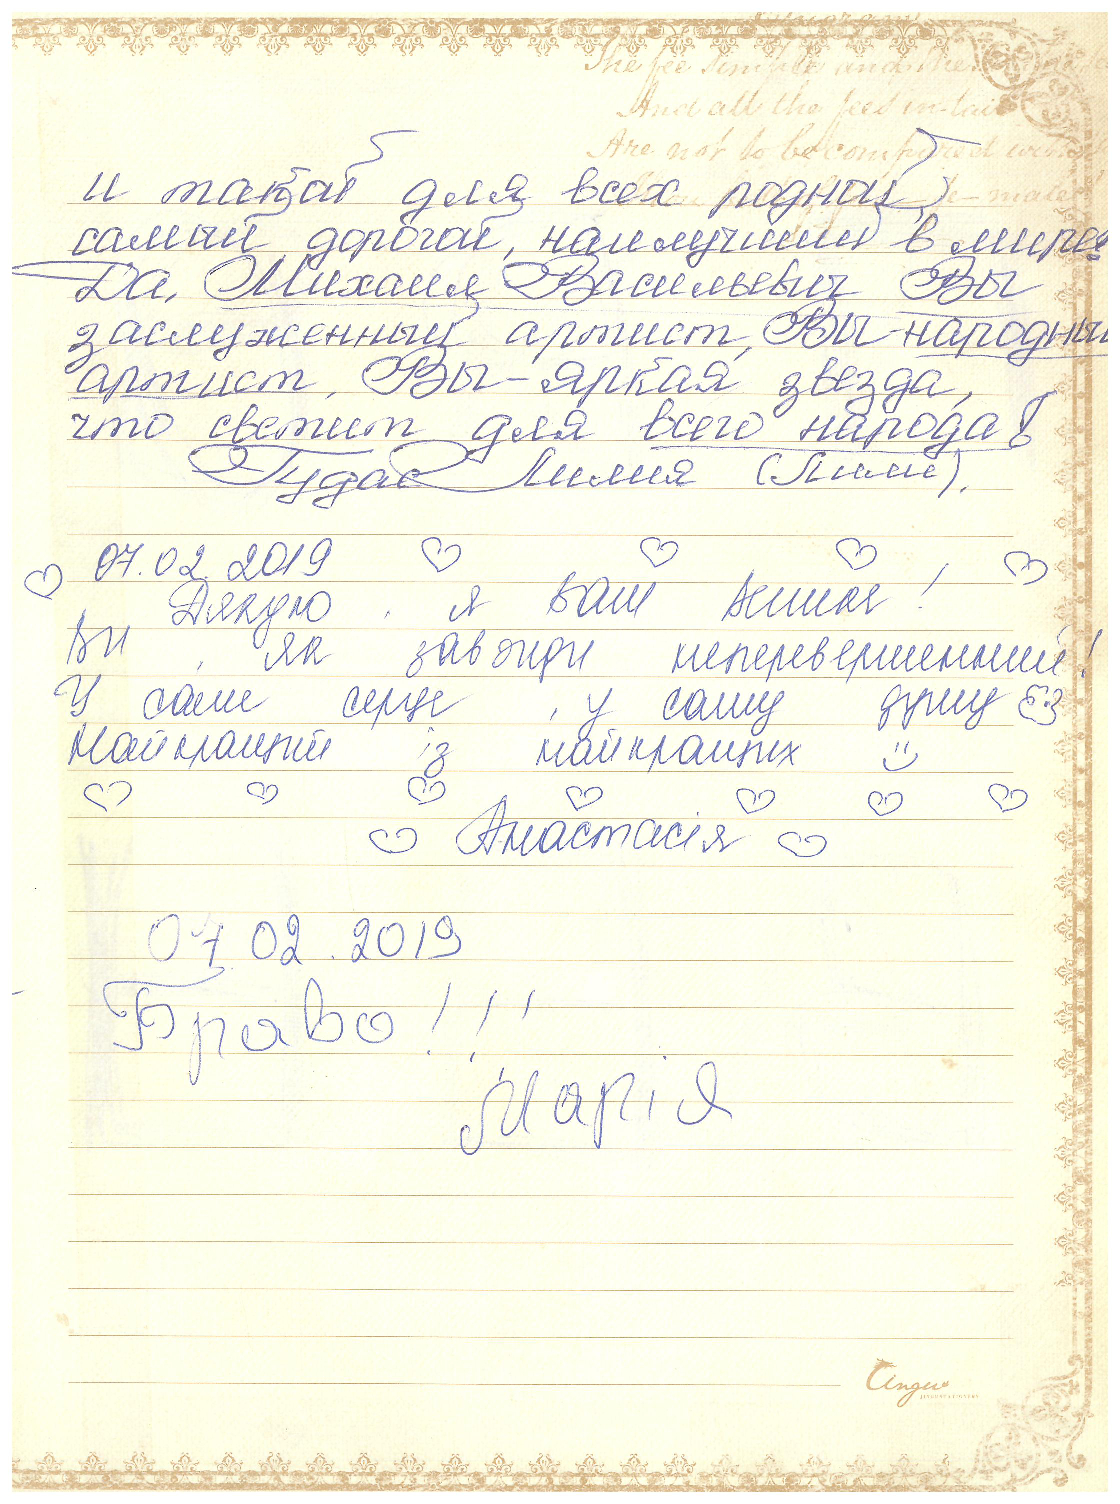 The fee simple and the
And all the fees in-tail
Are not to be compared with
и такой для всех родной,
самый дорогой, наилучший в мире
Да, Михаил Васильевич Вы
заслуженный артист, Вы-народный
артист, Вы-яркая звезда,
что светит для всего народа!
Гудас Лилия (Лили).
07.02.2019
Дякую, я Ваш !
Ви, як завжди неперевершенний!
У саме серце, у саму душу <3
Найкращий із найкращих
Анастасія
07.02.2019
Браво!!!
Марія